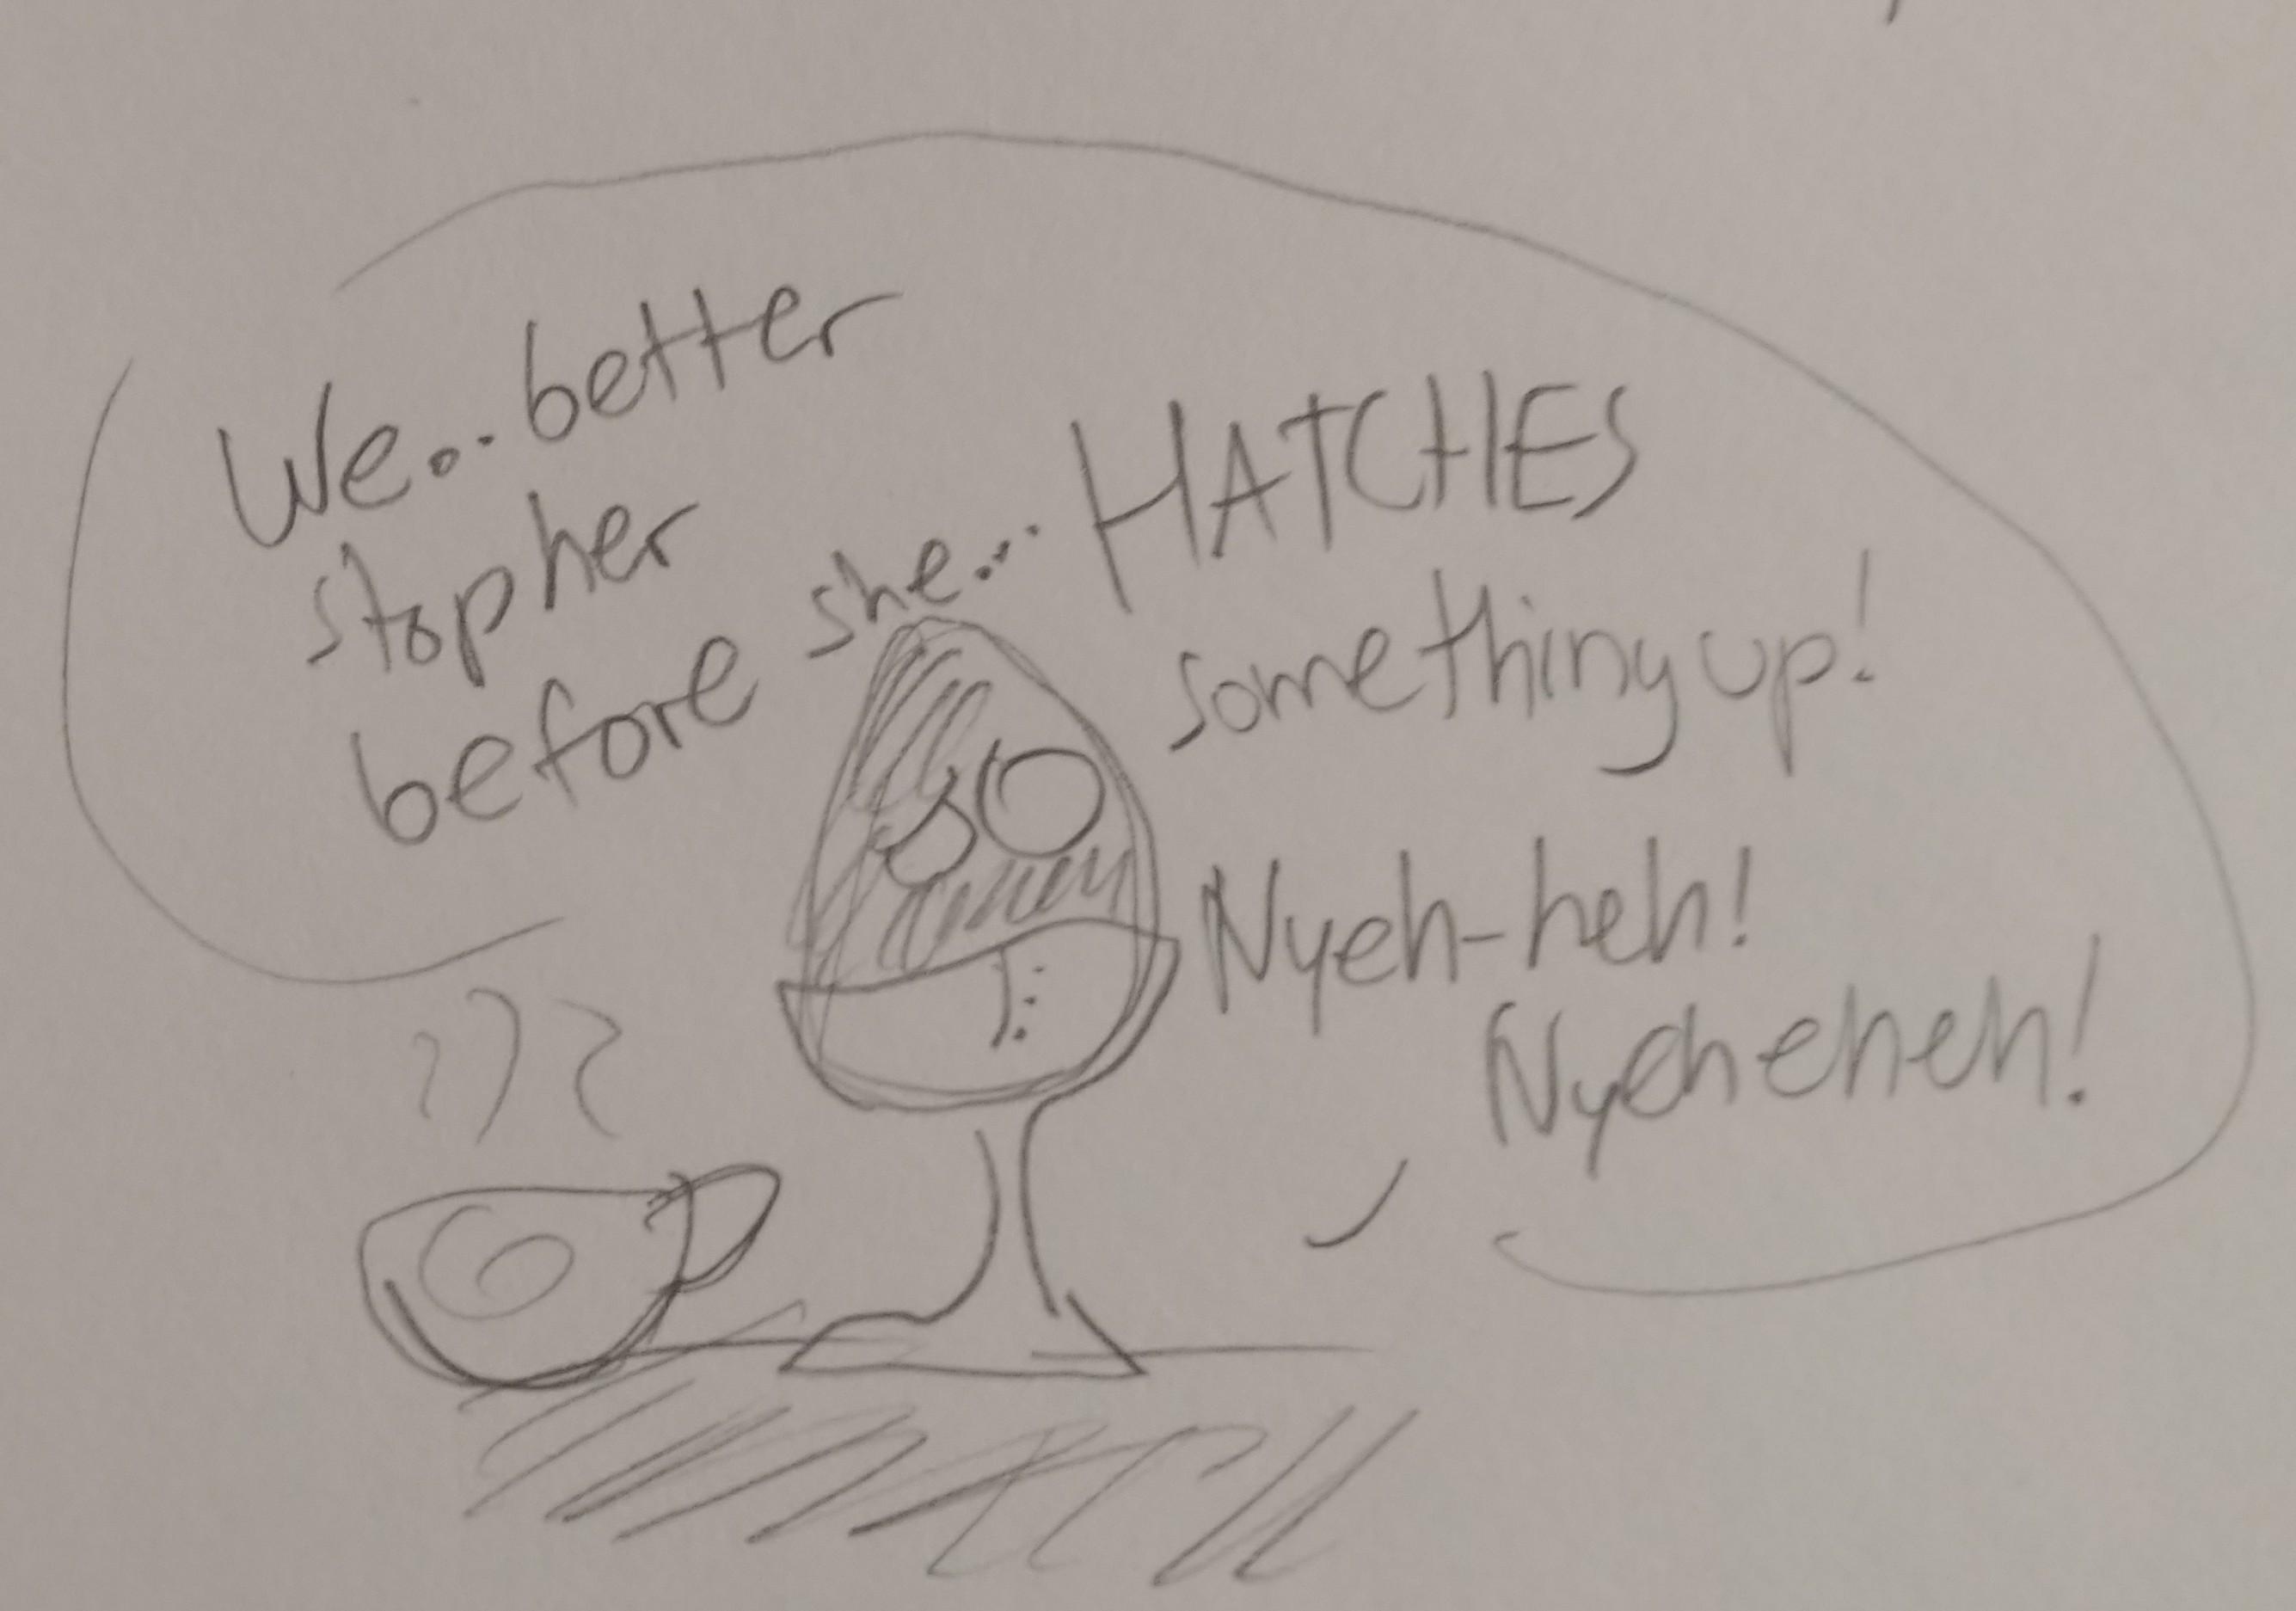 We... better
stop her
before she... HATCHES
something up!
Nyeh-heh!
Nyeheheh!